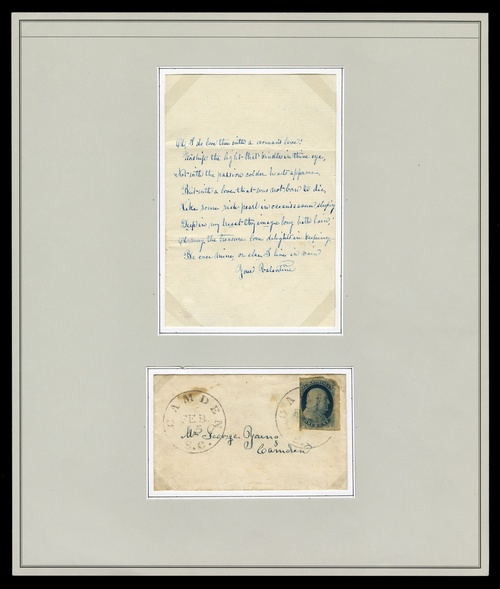 I do love thee with a woman's love;
Worship the light that kindles in thine eye,
Not with the passion colder hearts approve
But with a love that was not born to die,
Like some rich pearl in ocean's cavern sleeping
Deep in my breast thy image long hath lain;
the treasure love delights in keeping
Be ever mine, or else I live in vain
Your Valentine
CAMDEN
FEB
5
S.C.
CA
Mr George
Camden